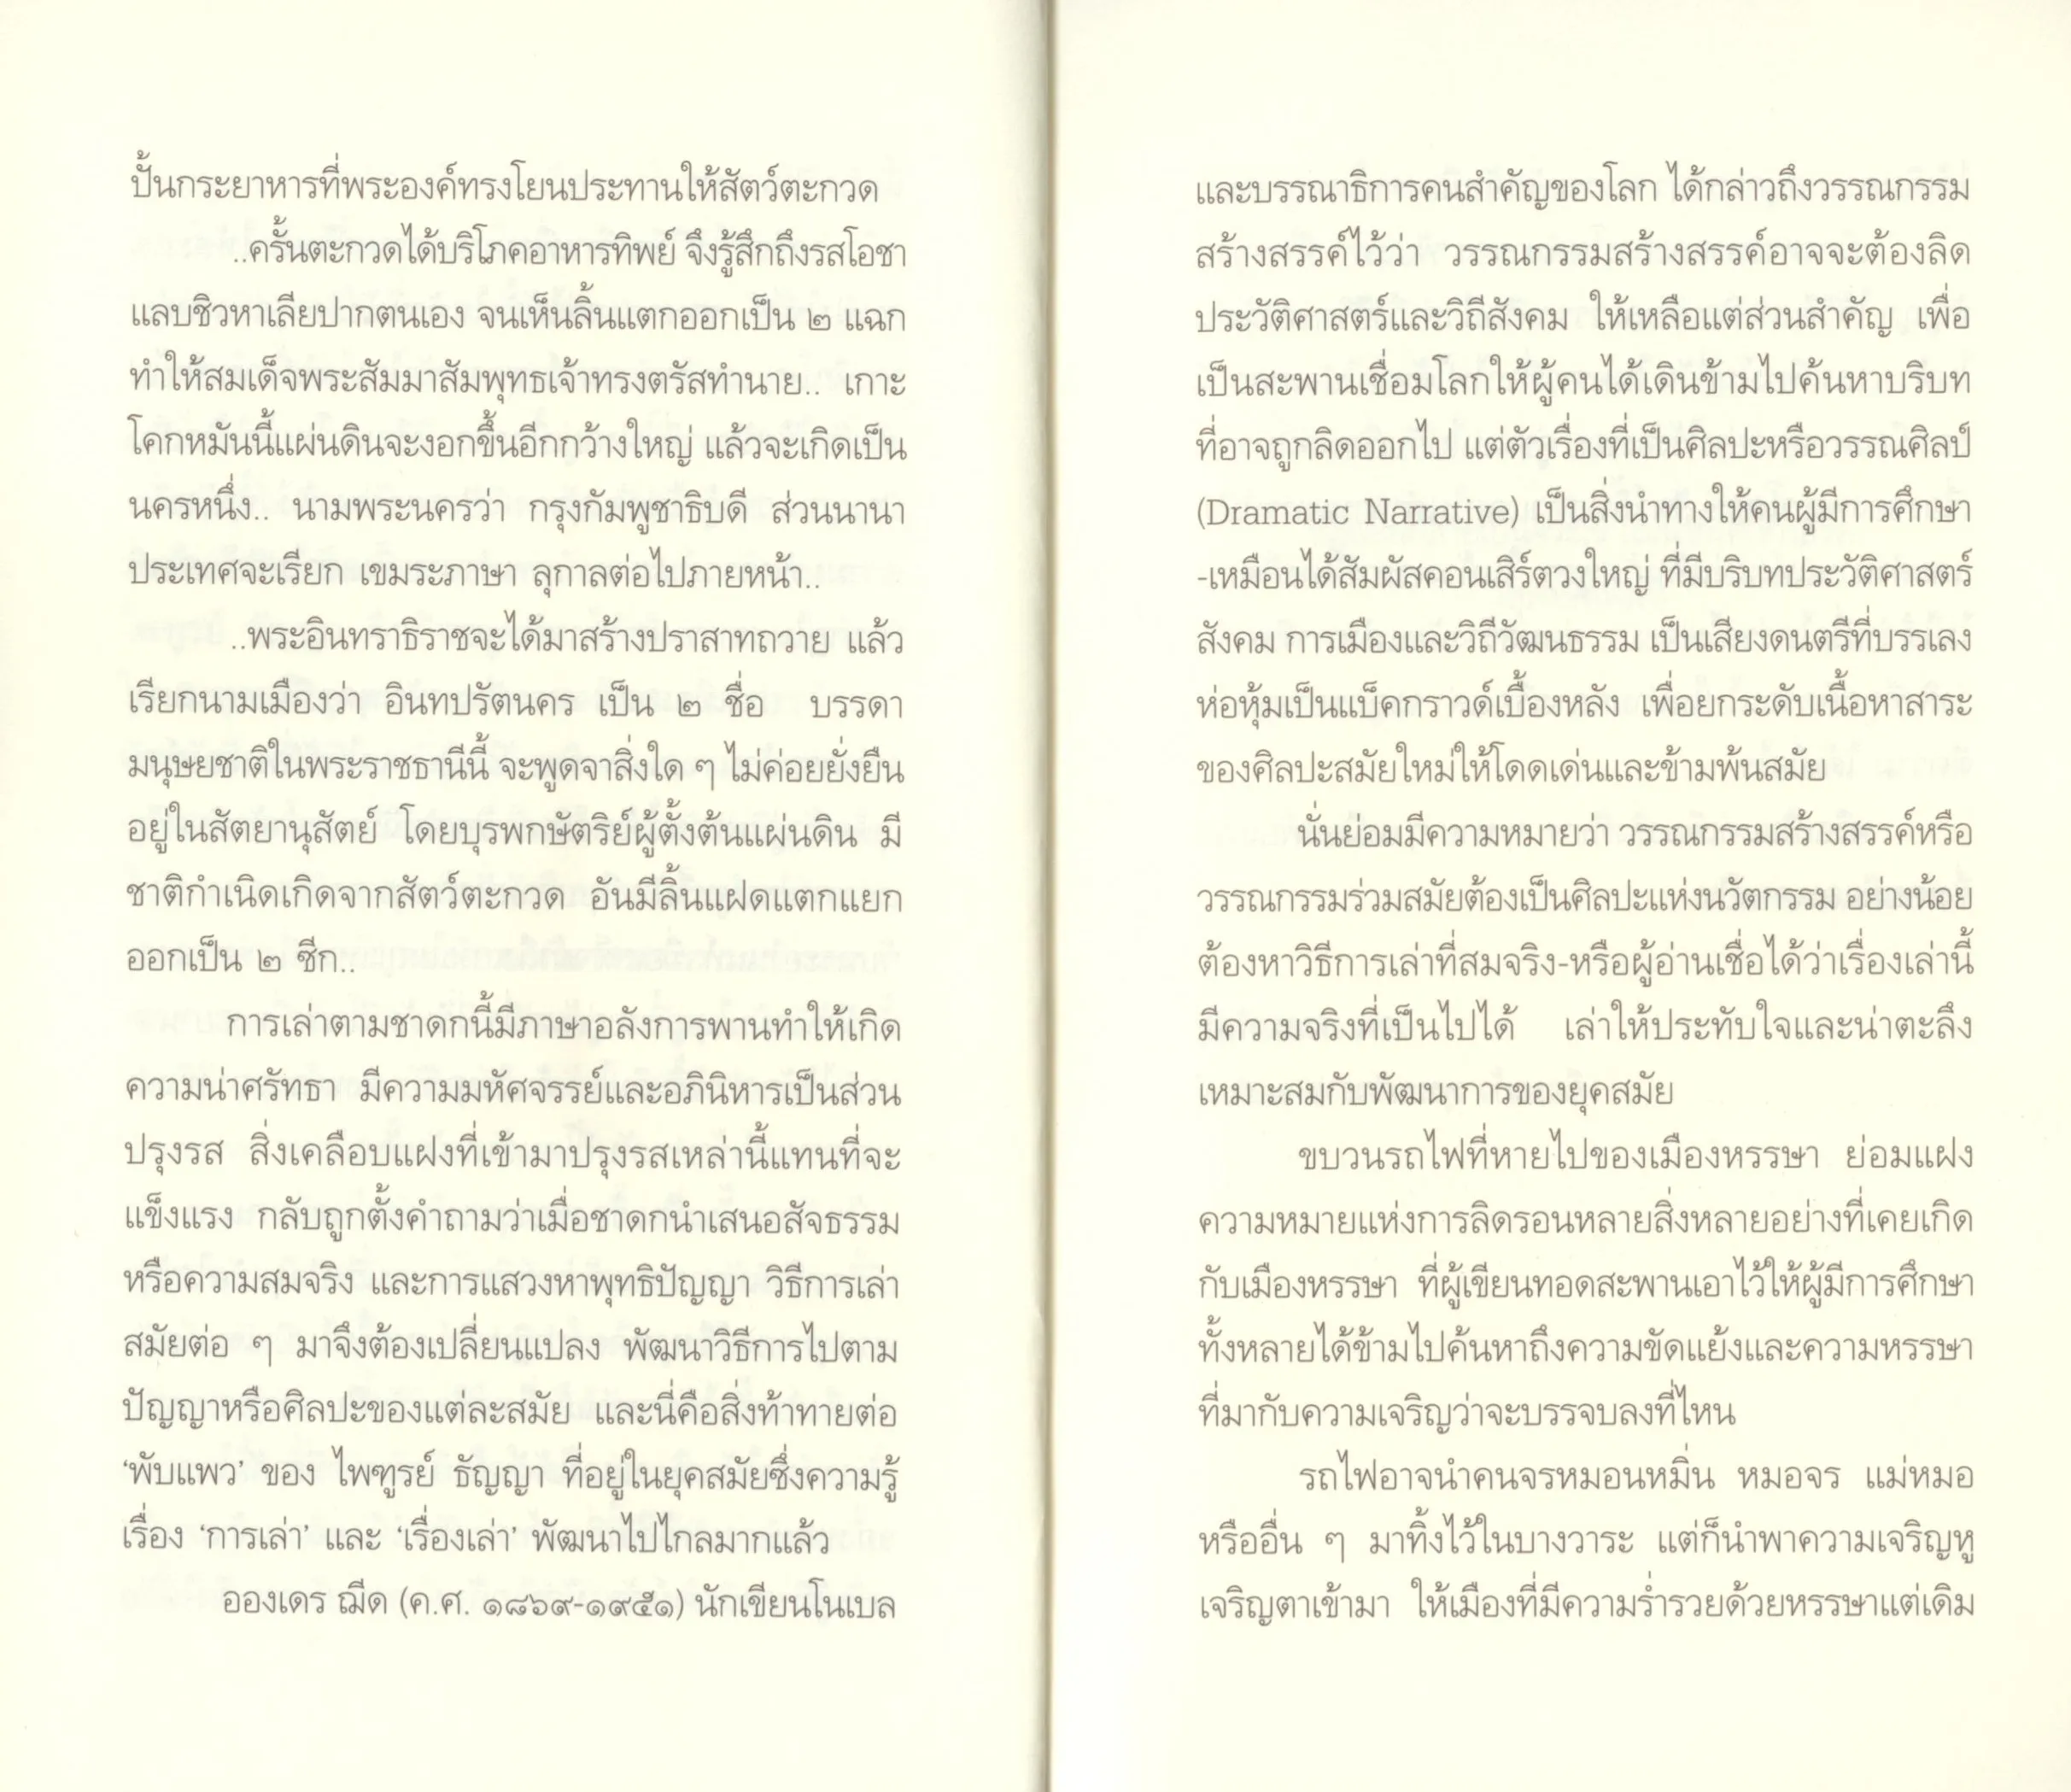 ปั้นกระยาหารที่พระองค์ทรงโยนประทานให้สัตว์ตะกวด
..ครั้นตะกวดได้บริโภคอาหารทิพย์ จึงรู้สึกถึงรสโอชา
แลบชิวหาเลียปากตนเอง จนเห็นลิ้นแตกออกเป็น ๒ แฉก
ทำให้สมเด็จพระสัมมาสัมพุทธเจ้าทรงตรัสทำนาย.. เกาะ
โคกหมันนี้แผ่นดินจะงอกขึ้นอีกกว้างใหญ่ แล้วจะเกิดเป็น
นครหนึ่ง.. นามพระนครว่า กรุงกัมพูชาธิบดี ส่วนนานา
ประเทศจะเรียก เขมระภาษา ลุกาลต่อไปภายหน้า..
..พระอินทราธิราชจะได้มาสร้างปราสาทถวาย แล้ว
เรียกนามเมืองว่า อินทปรัตนคร เป็น ๒ ชื่อ บรรดา
มนุษยชาติในพระราชธานีนี้ จะพูดจาสิ่งใด ๆ ไม่ค่อยยั่งยืน
อยู่ในสัตยานุสัตย์ โดยบุรพกษัตริย์ผู้ตั้งต้นแผ่นดิน มี
ชาติกำเนิดเกิดจากสัตว์ตะกวด อันมีลิ้นแฝดแตกแยก
ออกเป็น ๒ ซีก..
การเล่าตามชาดกนี้มีภาษาอลังการพานทำให้เกิด
ความน่าศรัทธา มีความมหัศจรรย์และอภินิหารเป็นส่วน
ปรุงรส สิ่งเคลือบแฝงที่เข้ามาปรุงรสเหล่านี้แทนที่จะ
แข็งแรง กลับถูกตั้งคำถามว่าเมื่อชาดกนำเสนอสัจธรรม
หรือความสมจริง และการแสวงหาพุทธิปัญญา วิธีการเล่า
สมัยต่อ ๆ มาจึงต้องเปลี่ยนแปลง พัฒนาวิธีการไปตาม
ปัญญาหรือศิลปะของแต่ละสมัย และนี่คือสิ่งท้าทายต่อ
‘พับแพว’ ของ ไพฑูรย์ ธัญญา ที่อยู่ในยุคสมัยซึ่งความรู้
เรื่อง ‘การเล่า’ และ ‘เรื่องเล่า’ พัฒนาไปไกลมากแล้ว
อองเดร ฌีด (ค.ศ. ๑๘๖๙-๑๙๕๑) นักเขียนโนเบล
และบรรณาธิการคนสำคัญของโลก ได้กล่าวถึงวรรณกรรม
สร้างสรรค์ไว้ว่า วรรณกรรมสร้างสรรค์อาจจะต้องลิด
ประวัติศาสตร์และวิถีสังคม ให้เหลือแต่ส่วนสำคัญ เพื่อ
เป็นสะพานเชื่อมโลกให้ผู้คนได้เดินข้ามไปค้นหาบริบท
ที่อาจถูกลิดออกไป แต่ตัวเรื่องที่เป็นศิลปะหรือวรรณศิลป์
(Dramatic Narrative) เป็นสิ่งนำทางให้คนผู้มีการศึกษา
-เหมือนได้สัมผัสคอนเสิร์ตวงใหญ่ ที่มีบริบทประวัติศาสตร์
สังคม การเมืองและวิถีวัฒนธรรม เป็นเสียงดนตรีที่บรรเลง
ห่อหุ้มเป็นแบ็คกราวด์เบื้องหลัง เพื่อยกระดับเนื้อหาสาระ
ของศิลปะสมัยใหม่ให้โดดเด่นและข้ามพ้นสมัย
นั่นย่อมมีความหมายว่า วรรณกรรมสร้างสรรค์หรือ
วรรณกรรมร่วมสมัยต้องเป็นศิลปะแห่งนวัตกรรม อย่างน้อย
ต้องหาวิธีการเล่าที่สมจริง-หรือผู้อ่านเชื่อได้ว่าเรื่องเล่านี้
มีความจริงที่เป็นไปได้ เล่าให้ประทับใจและน่าตะลึง
เหมาะสมกับพัฒนาการของยุคสมัย
ขบวนรถไฟที่หายไปของเมืองหรรษา ย่อมแฝง
ความหมายแห่งการลิดรอนหลายสิ่งหลายอย่างที่เคยเกิด
กับเมืองหรรษา ที่ผู้เขียนทอดสะพานเอาไว้ให้ผู้มีการศึกษา
ทั้งหลายได้ข้ามไปค้นหาถึงความขัดแย้งและความหรรษา
ที่มากับความเจริญว่าจะบรรจบลงที่ไหน
รถไฟอาจนำคนจรหมอนหมิ่น หมอจร แม่หมอ
หรืออื่น ๆ มาทิ้งไว้ในบางวาระ แต่ก็นำพาความเจริญหู
เจริญตาเข้ามา ให้เมืองที่มีความร่ำรวยด้วยหรรษาแต่เดิม